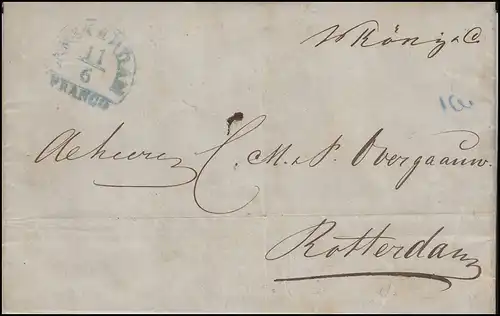 AMSTERDAM
11
6
FRANCO
König & C.
C. M. & P. Overgaauw.
Rotterdam